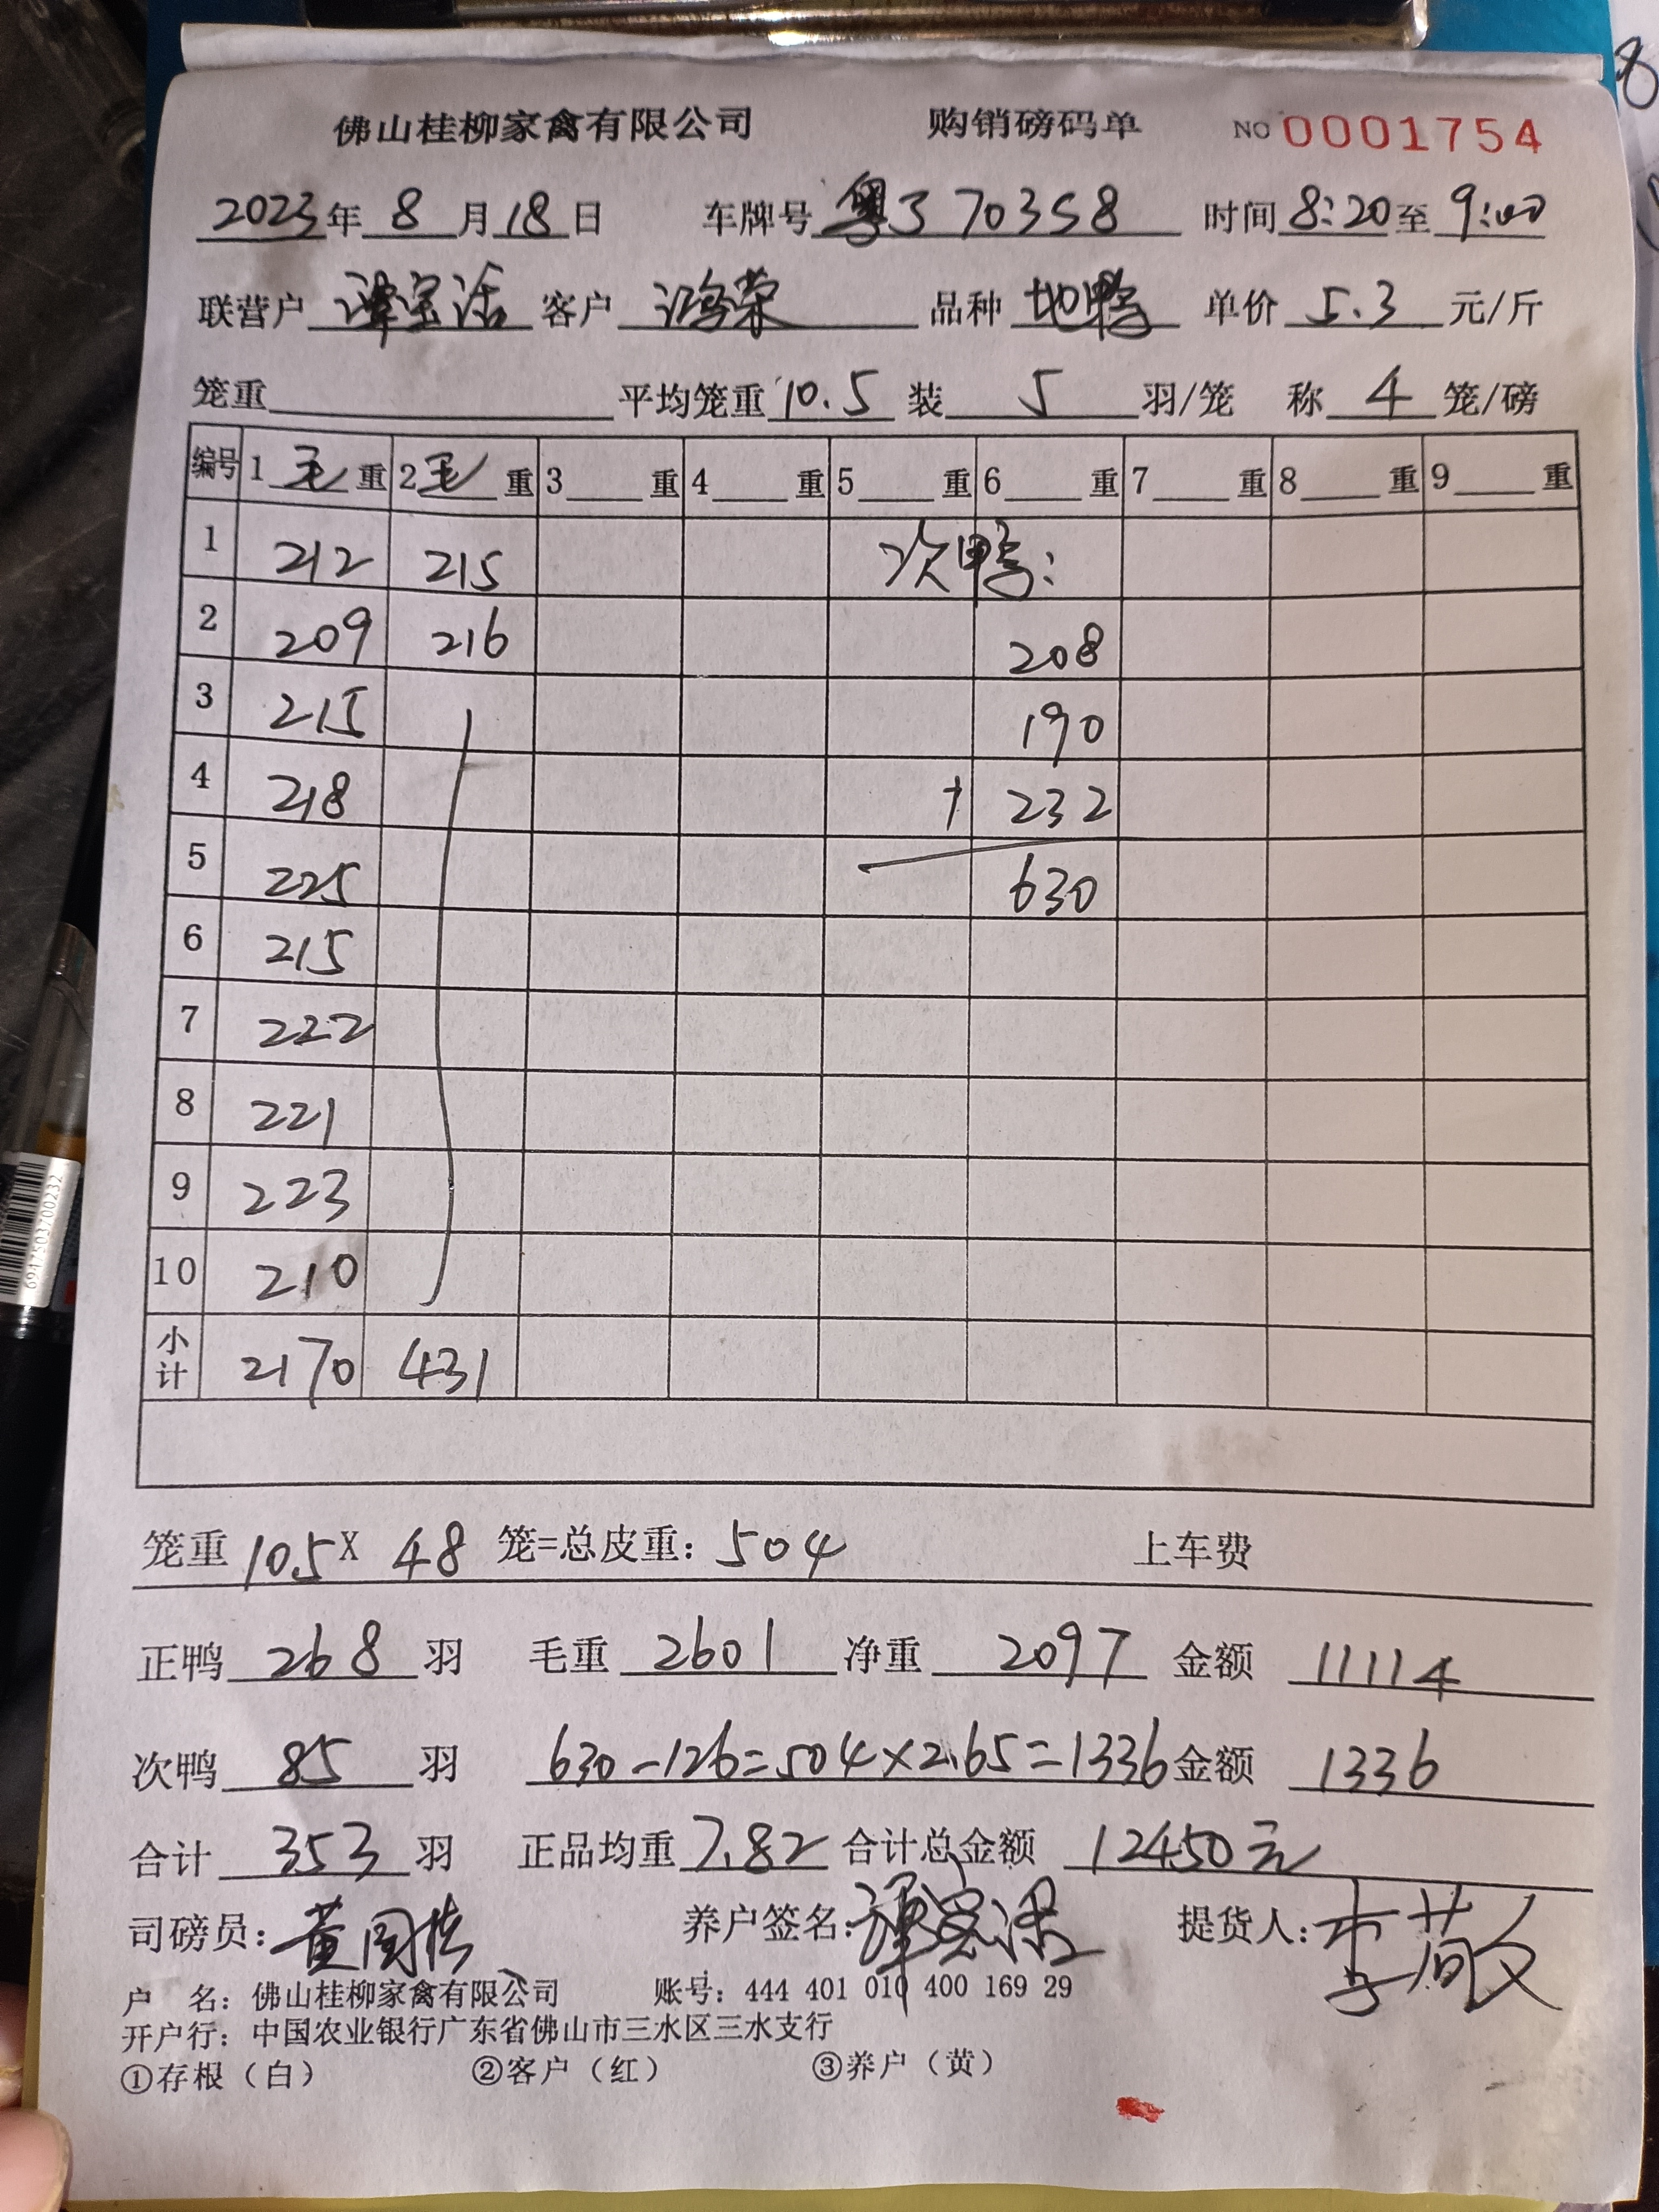 佛山桂柳家禽有限公司 购销磅码单 NO 0001754
2023年 8 月 18 日 车牌号 粤J 70358 时间 8:20 至 9:00
联营户 谭宝活 客户 鸿荣 品种 地鸭 单价 5.3 元/斤
笼重 平均笼重 10.5 装 5 羽/笼 称 4 笼/磅
编号 1 毛 重 2 毛 重 3 重 4 重 5 重 6 重 7 重 8 重 9 重
1 212 215 次鸭:
2 209 216 208
3 215 190
4 218 + 232
5 225 630
6 215
7 222
8 221
9 223
10 210
小计 2170 431
笼重 10.5 X 48 笼=总皮重: 504 上车费
正鸭 268 羽 毛重 2601 净重 2097 金额 11114
次鸭 85 羽 630-126=504×2.65=1336 金额 1336
合计 353 羽 正品均重 7.82 合计总金额 12450元
司磅员: 养户签名: 提货人:
户 名: 佛山桂柳家禽有限公司 账号: 444 401 010 400 169 29
开户行: 中国农业银行广东省佛山市三水区三水支行
①存根(白) ②客户(红) ③养户(黄)
6947503700232